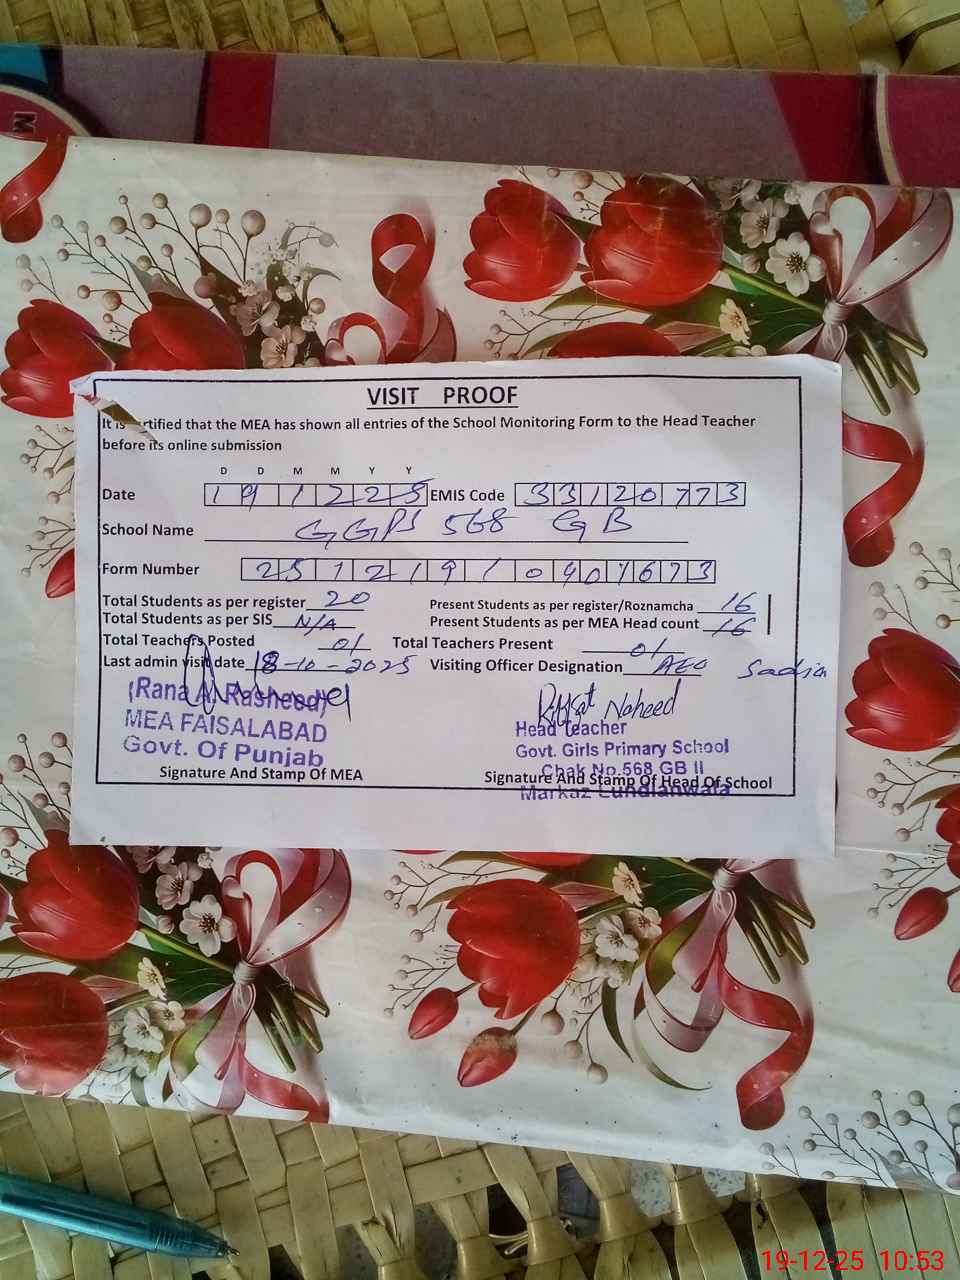 M
VISIT PROOF
It is rtified that the MEA has shown all entries of the School Monitoring Form to the Head Teacher
before its online submission
D D M M Y Y
Date 191225 EMIS Code 33120773
School Name GGPS 568 GB
Form Number 2512191090 673
Total Students as per register 20 Present Students as per register/Roznamcha 16
Total Students as per SIS N/A Present Students as per MEA Head count 16
Total Teachers Posted 01 Total Teachers Present 01
Last admin visit date 18-10-2025 Visiting Officer Designation AEO Sadia
(Rana A. Rasheed)
MEA FAISALABAD
Govt. Of Punjab
Signature And Stamp Of MEA
Riffat Naheed
Head Teacher
Govt. Girls Primary School
Chak No.568 GB II
Signature And Stamp Of Head Of School
Markaz Lundianwala
19-12-25 10:53